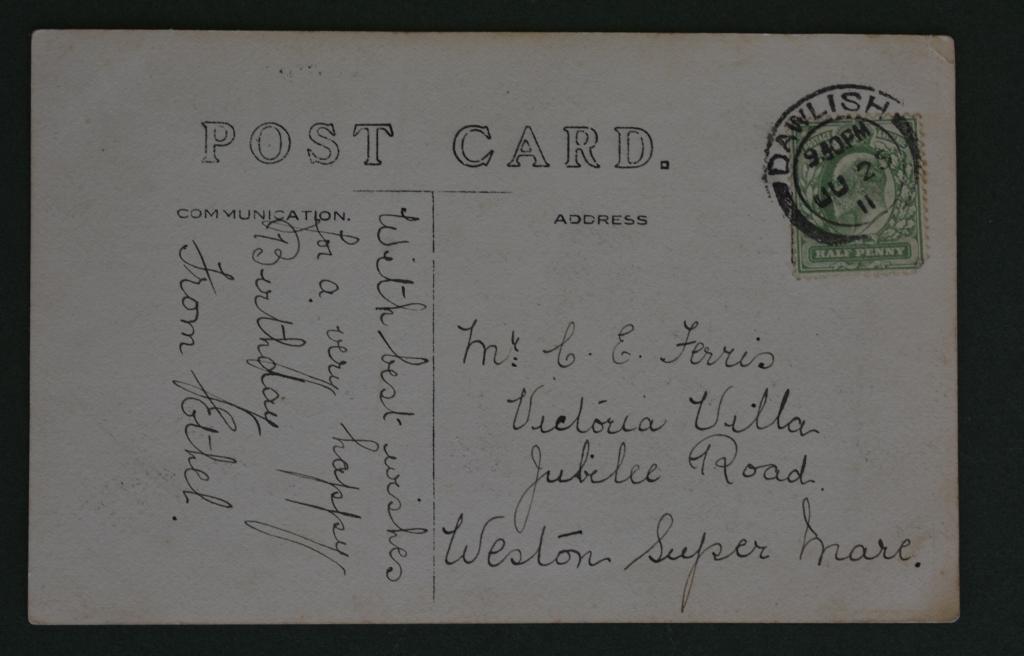 POST CARD.
COMMUNICATION.
ADDRESS
DAWLISH
9.30PM
JU 25
11
HALF PENNY
With best wishes
for a very happy
Birthday
From Ethel.
Mr. C. E. Ferris
Victoria Villa
Jubilee Road.
Weston Super Mare.